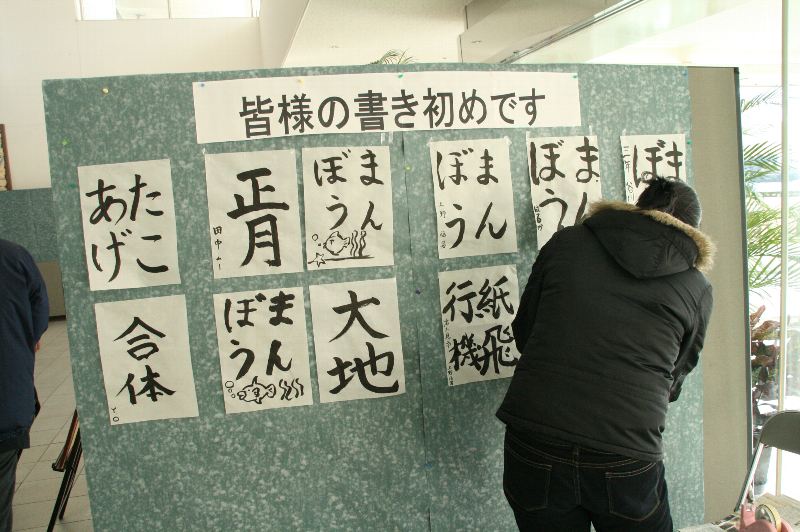 皆様の書き初めです
たこ
あげ
正月
まん
ぼう
まん
ぼう
まん
ぼう
合体
まん
ぼう
大地
紙飛
行機